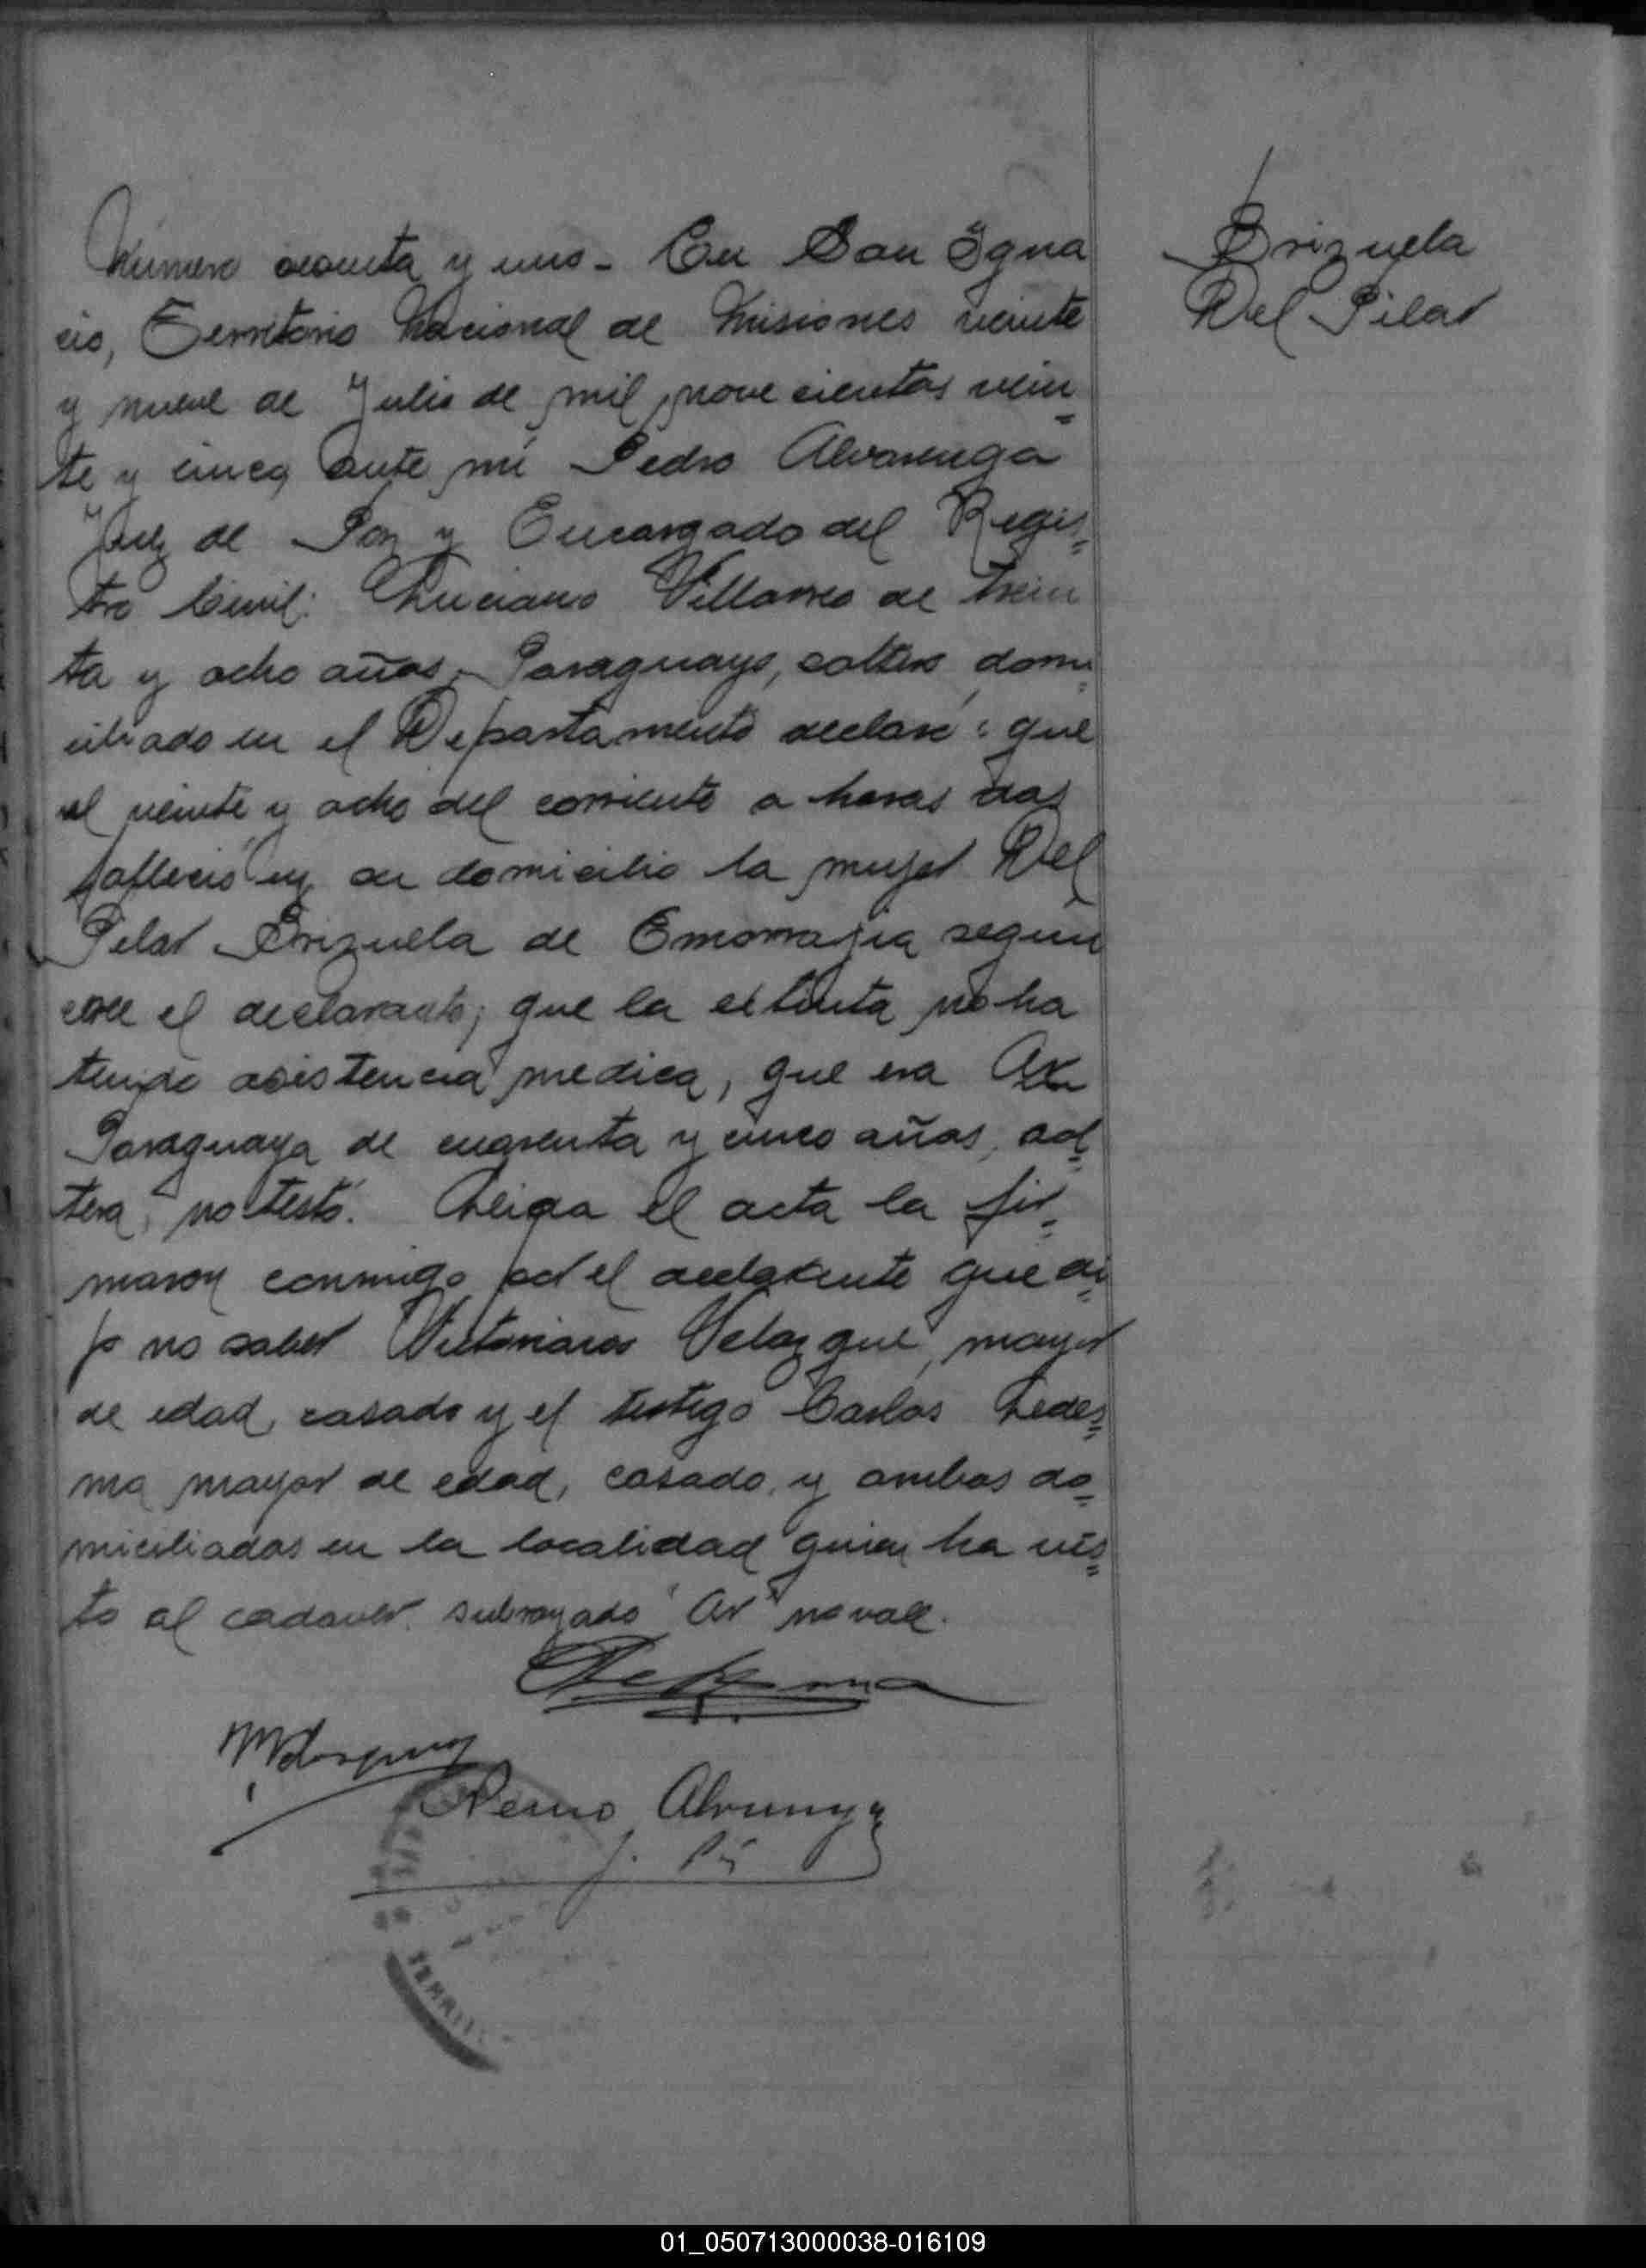 Brizuela
Del Pilar
Número secenta y uno - En San Igna
cio, Territorio Nacional de Misiones veinte
y nueve de Julio de mil novecientos vein-
te y cinco, ante mí Pedro Alvarenga
Juez de Paz y Encargado del Regis-
tro Civil: Luciano Villarreo de trein
ta y ocho años, Paraguayo, soltero, domi-
ciliado en el Departamento declaró: que
el veinte y ocho del corriente a horas dos
falleció en su domicilio la mujer Del
Pilar Brizuela de Emorragia según
cree el declarante; que la extinta no ha
tenido asistencia medica, que era Ar
Paraguaya de cuarenta y cinco años, sol-
tera, no testó. Leida el acta la fir-
maron conmigo por el declarante que di-
jo no saber Victoriano Velazque, mayor
de edad, casado y el testigo Carlos Ledes-
ma mayor de edad, casado, y ambos do-
miciliados en la localidad quien ha vis-
to al cadaver. subrayado "Ar" no vale.
Pedro Alvarenga
J. Pz
TERRIT
01_050713000038-016109